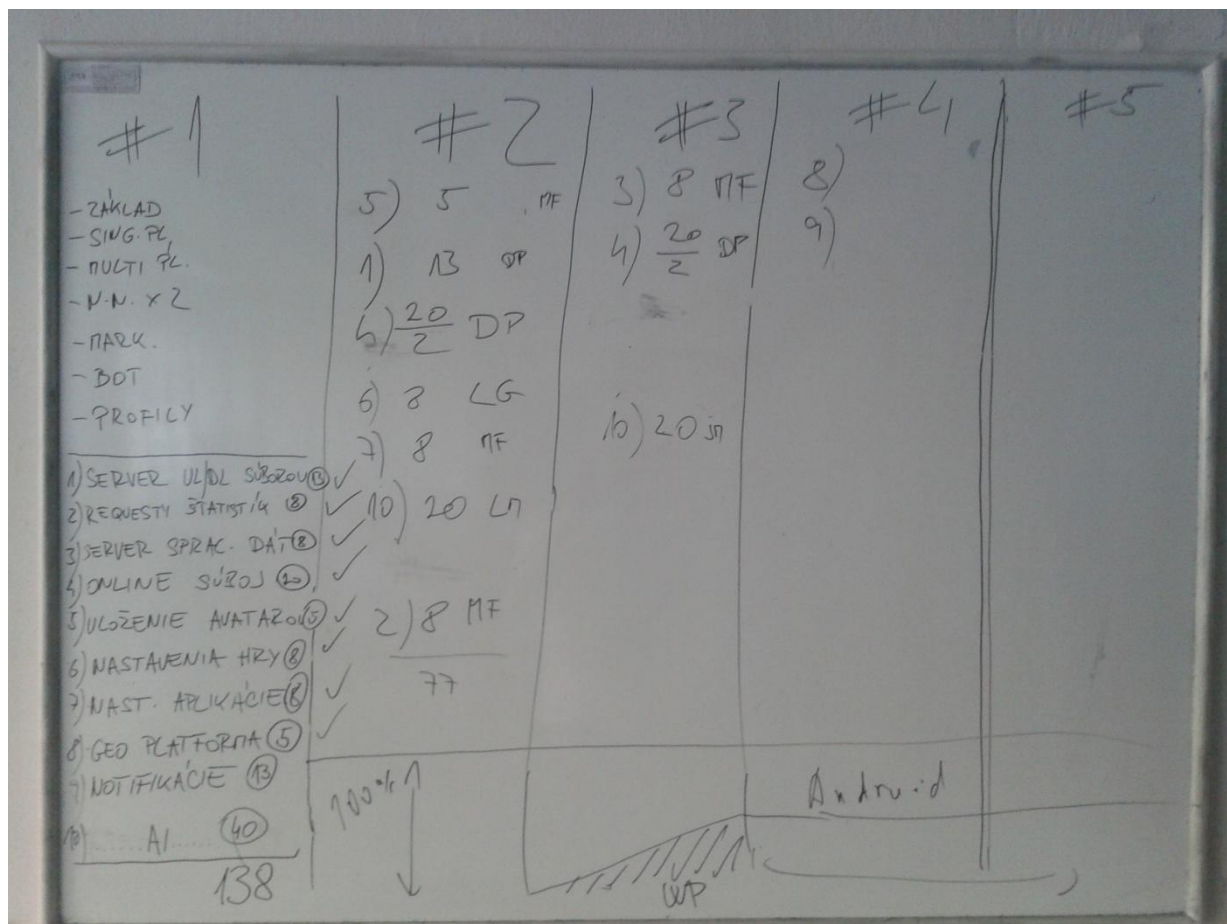 #1
- ZÁKLAD
- SING. PL.
- MULTI PL.
- N.N. x 2
- MARK.
- BOT
- PROFILY
1) SERVER UL/DL SÚBOROV 13 ✓
2) REQUESTY ŠTATISTÍK 8 ✓
3) SERVER SPRAC. DÁT 8 ✓
4) ONLINE SÚBOJ 20 ✓
5) ULOŽENIE AVATAROV 5 ✓
6) NASTAVENIA HRY 8 ✓
7) NAST. APLIKÁCIE 8 ✓
8) GEO PLATFORMA 5 ✓
9) NOTIFIKÁCIE 13
10) AI 40
138
#2
5) 5 MF
1) 13 DP
4) 20/2 DP
6) 8 LG
7) 8 MF
10) 20 LM
2) 8 MF
77
100%
#3
3) 8 MF
4) 20/2 DP
10) 20
WP
#4
8)
9)
Android
#5